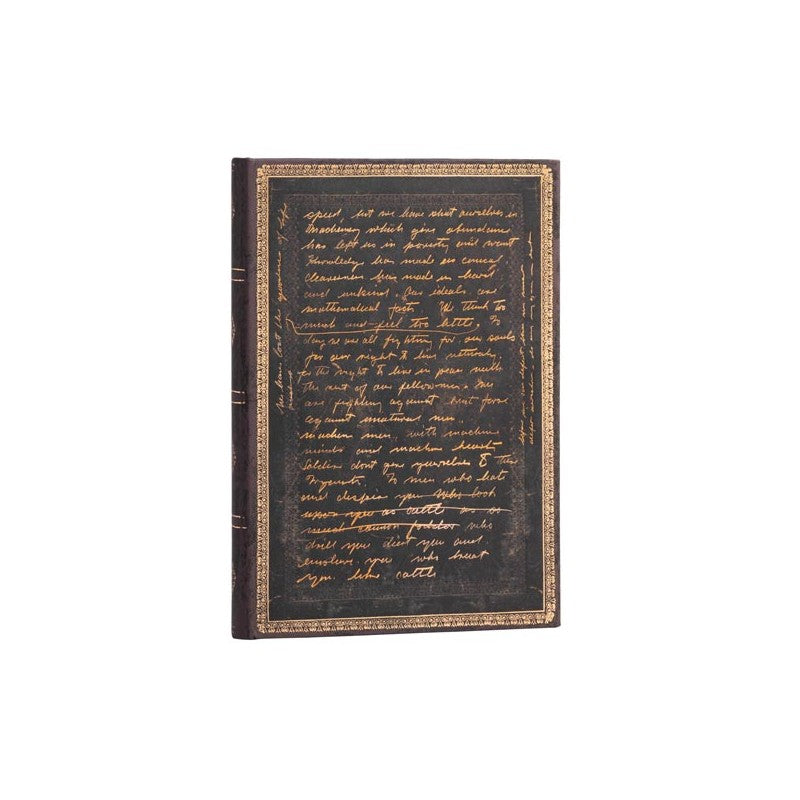 speed, but we have shut ourselves in
Machinery which gives abundance
has left us in poverty and want
Knowledge has made us cynical
cleverness has made us hard
and unkind. Our ideals are
mathematical facts We think too
much and feel too little. To
day we are all fighting for our souls
for our right to live naturally
for the right to live in peace with
the rest of our fellowmen. We
are fighting against
against unatural men.
machine men, with machine
minds and machine heart
Soldiers dont give yourselves to these
To men who hate
and despise you who look
upon you as cattle as so
much cannon fodder who
drill you diet you and
enslave you who treat
you like cattle
We have lost the of life